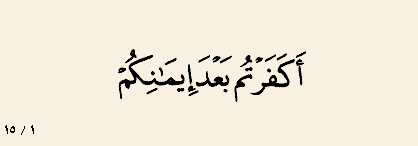 أَكَفَرْتُم بَعْدَ إِيمَٰنِكُمْ
١ / ١٥